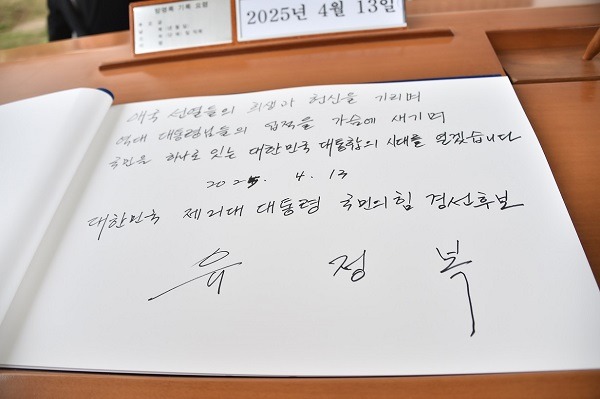 방명록 기록 요령
2025년 4월 13일
애국 선열들의 희생과 헌신을 기리며
역대 대통령님들의 업적을 가슴에 새기며
국민을 하나로 잇는 대한민국 대통합의 시대를 열겠습니다
2025. 4. 13
대한민국 제21대 대통령 국민의힘 경선후보
유 정 복